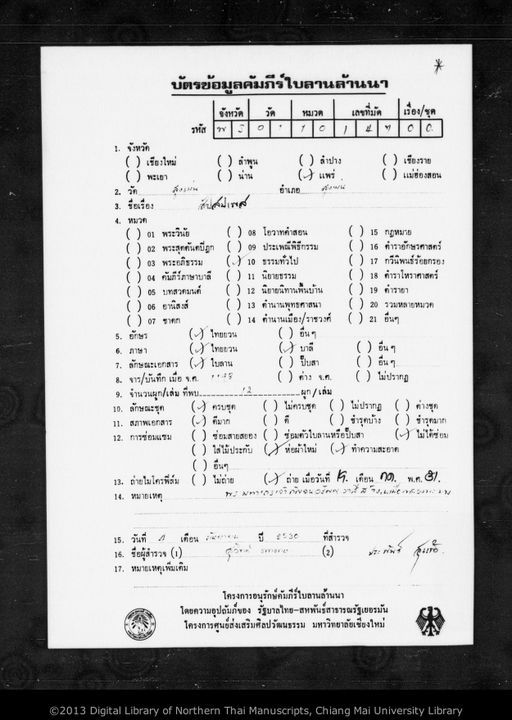 บัตรข้อมูลคัมภีร์ใบลานล้านนา
จังหวัด วัด หมวด เลขที่มัด เรื่อง/ชุด
รหัส พ ร 0 1 1 0 1 4 0 0
1. จังหวัด
( ) เชียงใหม่ ( ) ลำพูน ( ) ลำปาง ( ) เชียงราย
( ) พะเยา ( ) น่าน (✓) แพร่ ( ) แม่ฮ่องสอน
2. วัด สูงเม่น อำเภอ สูงเม่น
3. ชื่อเรื่อง
4. หมวด
( ) 01 พระวินัย ( ) 08 โอวาทคำสอน ( ) 15 กฎหมาย
( ) 02 พระสุตตันตปิฎก ( ) 09 ประเพณีพิธีกรรม ( ) 16 ตำราอักษรศาสตร์
( ) 03 พระอภิธรรม (✓) 10 ธรรมทั่วไป ( ) 17 กวีนิพนธ์ร้อยกรอง
( ) 04 คัมภีร์ภาษาบาลี ( ) 11 นิยายธรรม ( ) 18 ตำราโหราศาสตร์
( ) 05 บทสวดมนต์ ( ) 12 นิยายนิทานพื้นบ้าน ( ) 19 ตำรายา
( ) 06 อานิสงส์ ( ) 13 ตำนานพุทธศาสนา ( ) 20 รวมหลายหมวด
( ) 07 ชาดก ( ) 14 ตำนานเมือง/ราชวงศ์ ( ) 21 อื่นๆ
5. อักษร (✓) ไทยยวน ( ) อื่นๆ
6. ภาษา (✓) ไทยยวน (✓) บาลี ( ) อื่นๆ
7. ลักษณะเอกสาร (✓) ใบลาน ( ) ปั๊บสา ( ) อื่นๆ
8. จาร/บันทึก เมื่อ จ.ศ. 1198 ( ) ต่าง จ.ศ. ( ) ไม่ปรากฏ
9. จำนวนผูก/เล่ม ที่พบ 12 ผูก/เล่ม
10. ลักษณะชุด (✓) ครบชุด ( ) ไม่ครบชุด ( ) ไม่ปรากฏ ( ) ต่างชุด
11. สภาพเอกสาร (✓) ดีมาก ( ) ดี ( ) ชำรุดบ้าง ( ) ชำรุดมาก
12. การซ่อมแซม ( ) ซ่อมสายสยอง ( ) ซ่อมตัวใบลานหรือปั๊บสา (✓) ไม่ได้ซ่อม
( ) ใส่ไม้ประกับ (✓) ห่อผ้าใหม่ (✓) ทำความสะอาด
( ) อื่นๆ
13. ถ่ายไมโครฟิล์ม ( ) ไม่ถ่าย (✓) ถ่าย เมื่อวันที่ เดือน พ.ศ.
14. หมายเหตุ
15. วันที่ เดือน กันยายน ปี 2530 ที่สำรวจ
16. ชื่อผู้สำรวจ (1) (2)
17. หมายเหตุเพิ่มเติม
โครงการอนุรักษ์คัมภีร์ใบลานล้านนา
โดยความอุปถัมภ์ของ รัฐบาลไทย-สหพันธ์สาธารณรัฐเยอรมัน
โครงการศูนย์ส่งเสริมศิลปวัฒนธรรม มหาวิทยาลัยเชียงใหม่
©2013 Digital Library of Northern Thai Manuscripts, Chiang Mai University Library